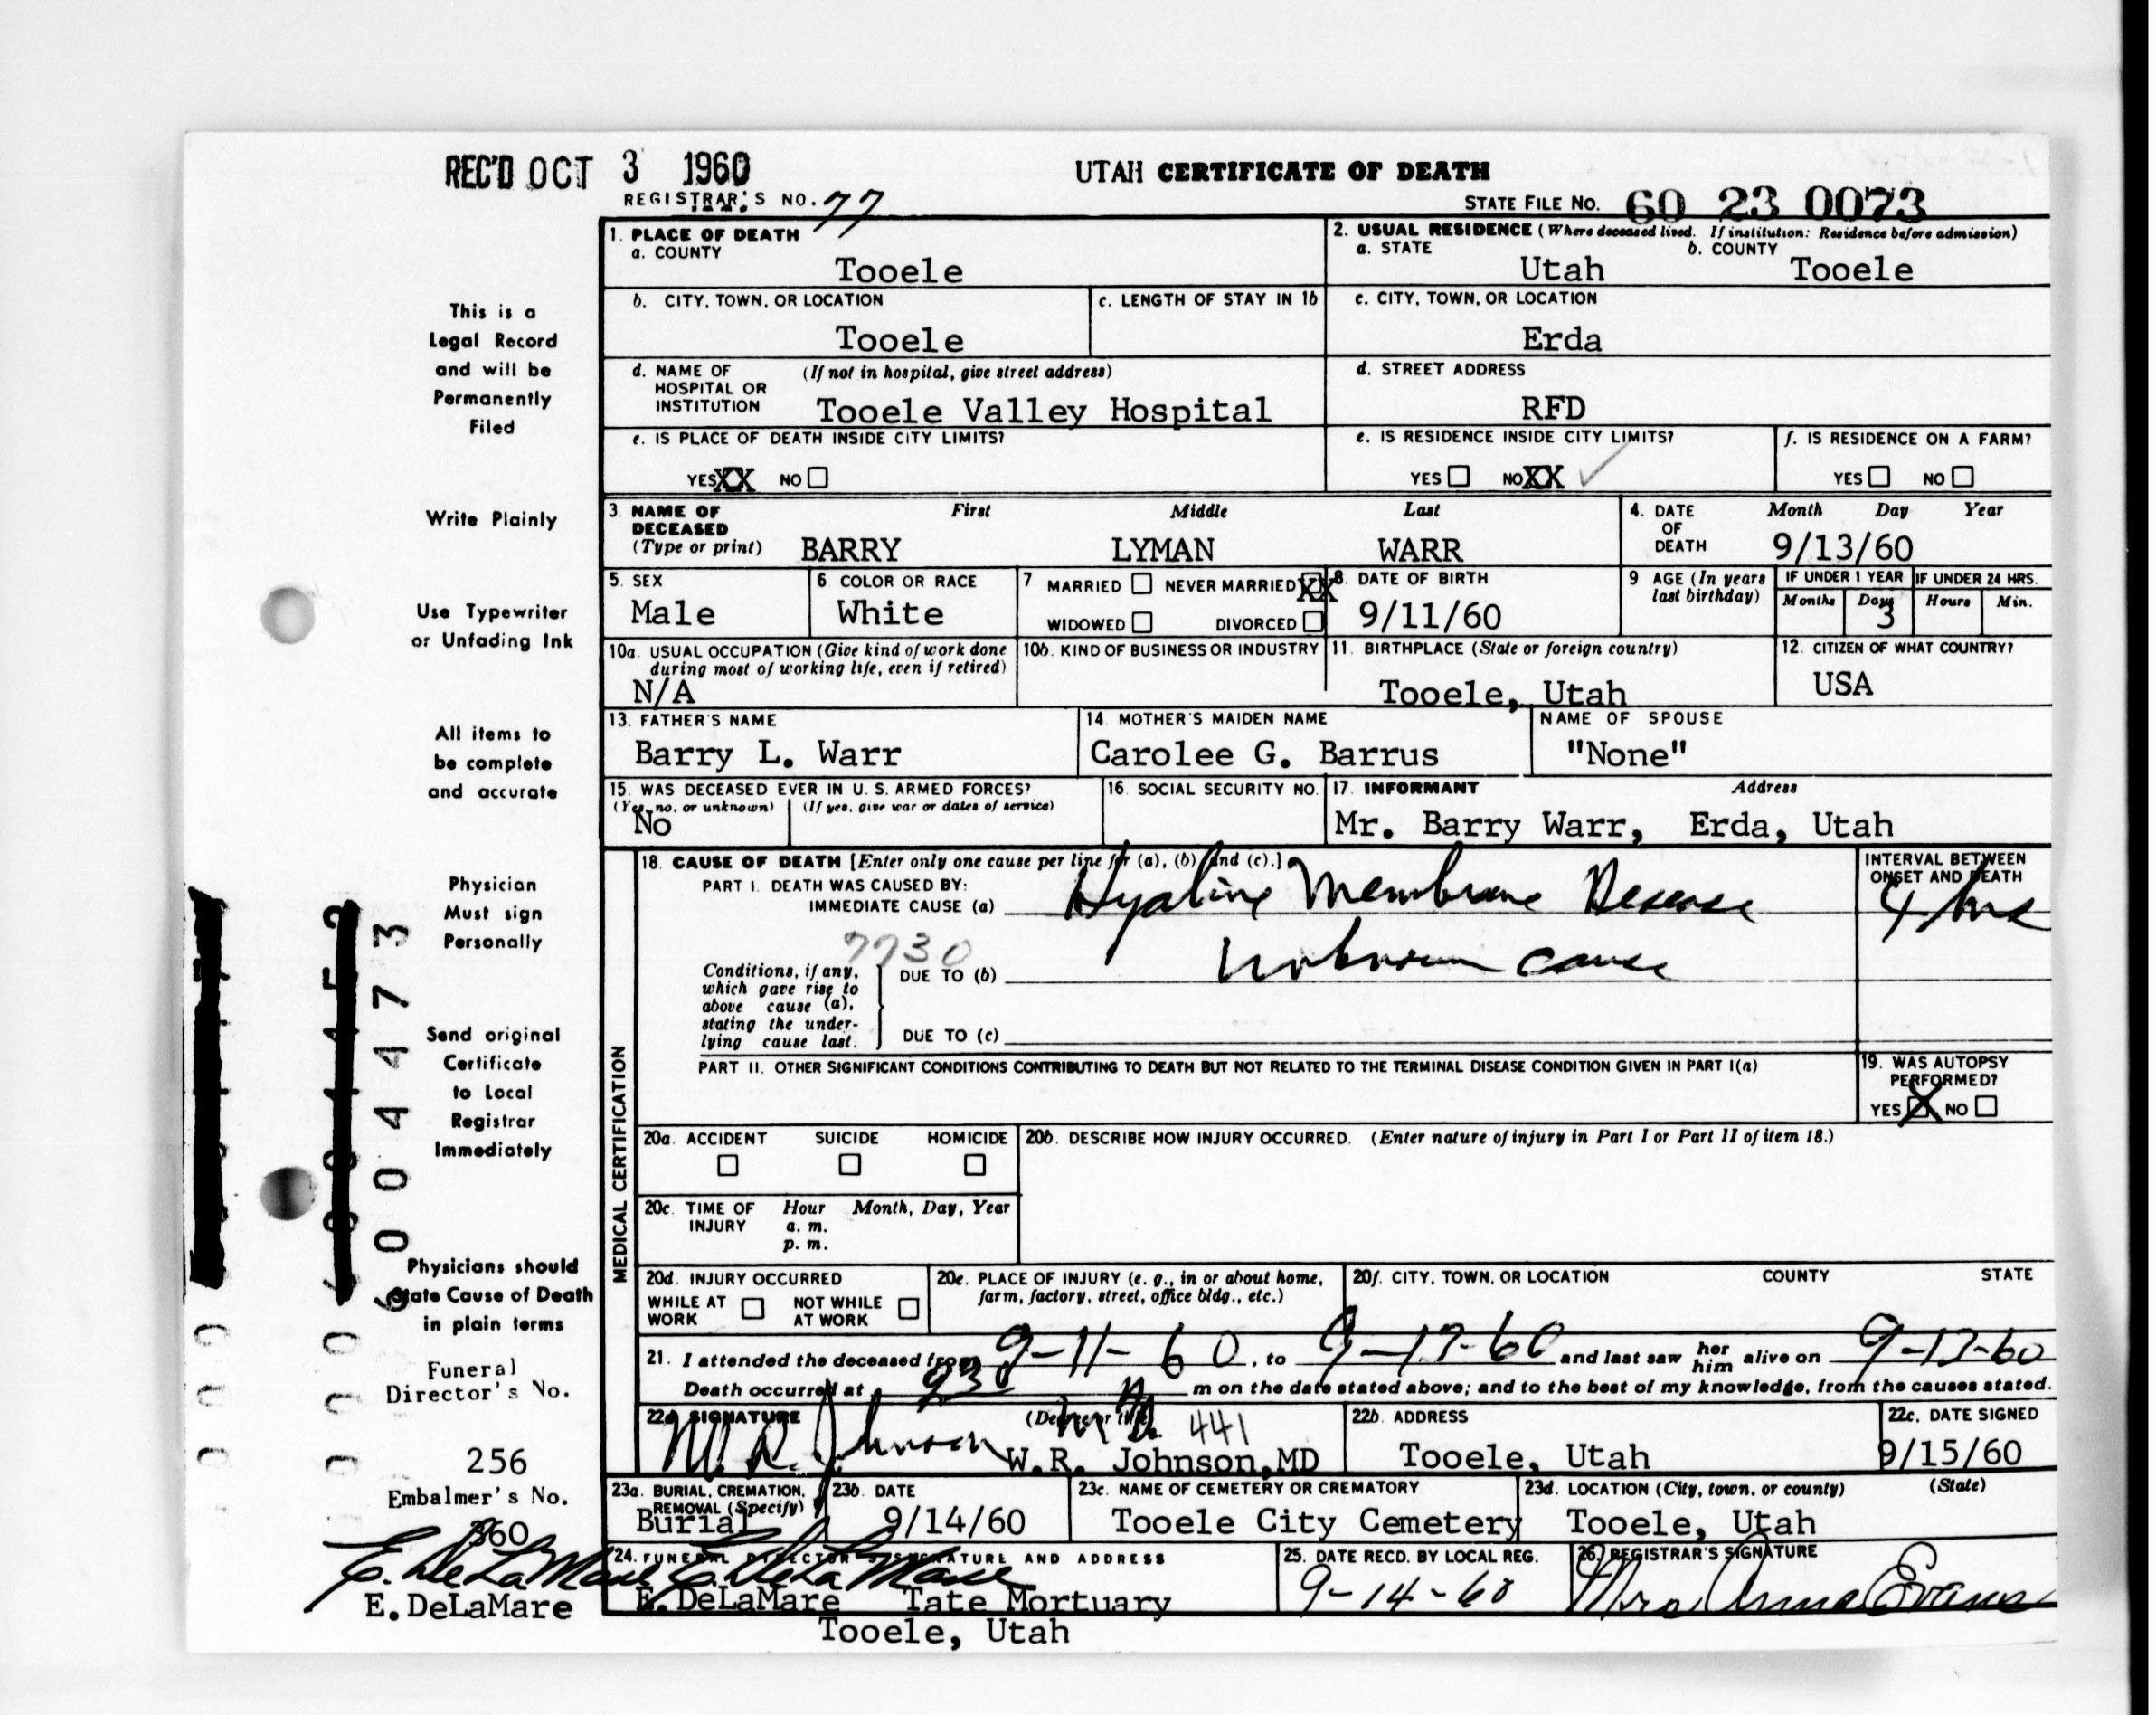 REC'D OCT 3 1960
UTAH CERTIFICATE OF DEATH
REGISTRAR'S NO. 77
STATE FILE NO. 60 23 0073
1. PLACE OF DEATH
a. COUNTY
Tooele
2. USUAL RESIDENCE (Where deceased lived. If institution: Residence before admission)
a. STATE b. COUNTY
Utah Tooele
b. CITY, TOWN, OR LOCATION
Tooele
c. LENGTH OF STAY IN 1b
c. CITY, TOWN, OR LOCATION
Erda
d. NAME OF HOSPITAL OR INSTITUTION (If not in hospital, give street address)
Tooele Valley Hospital
d. STREET ADDRESS
RFD
e. IS PLACE OF DEATH INSIDE CITY LIMITS?
YES XX NO
e. IS RESIDENCE INSIDE CITY LIMITS?
YES NO XX
f. IS RESIDENCE ON A FARM?
YES NO
3. NAME OF DECEASED (Type or print)
First Middle Last
BARRY LYMAN WARR
4. DATE OF DEATH
Month Day Year
9/13/60
5. SEX
Male
6. COLOR OR RACE
White
7 MARRIED NEVER MARRIED XX
WIDOWED DIVORCED
8. DATE OF BIRTH
9/11/60
9 AGE (In years last birthday)
IF UNDER 1 YEAR
Months Days
3
IF UNDER 24 HRS.
Hours Min.
10a. USUAL OCCUPATION (Give kind of work done during most of working life, even if retired)
N/A
10b. KIND OF BUSINESS OR INDUSTRY
11. BIRTHPLACE (State or foreign country)
Tooele, Utah
12. CITIZEN OF WHAT COUNTRY?
USA
13. FATHER'S NAME
Barry L. Warr
14. MOTHER'S MAIDEN NAME
Carolee G. Barrus
NAME OF SPOUSE
"None"
15. WAS DECEASED EVER IN U.S. ARMED FORCES?
(Yes, no, or unknown) (If yes, give war or dates of service)
No
16. SOCIAL SECURITY NO.
17. INFORMANT Address
Mr. Barry Warr, Erda, Utah
MEDICAL CERTIFICATION
18. CAUSE OF DEATH [Enter only one cause per line for (a), (b) and (c).]
PART I. DEATH WAS CAUSED BY:
IMMEDIATE CAUSE (a) Hyaline Membrane Disease
INTERVAL BETWEEN ONSET AND DEATH
4 hrs
7730
Conditions, if any, which gave rise to above cause (a), stating the underlying cause last.
DUE TO (b) Unknown cause
DUE TO (c)
PART II. OTHER SIGNIFICANT CONDITIONS CONTRIBUTING TO DEATH BUT NOT RELATED TO THE TERMINAL DISEASE CONDITION GIVEN IN PART I(a)
19. WAS AUTOPSY PERFORMED?
YES X NO
20a. ACCIDENT SUICIDE HOMICIDE
20b. DESCRIBE HOW INJURY OCCURRED. (Enter nature of injury in Part I or Part II of item 18.)
20c. TIME OF INJURY
Hour Month, Day, Year
a. m.
p. m.
20d. INJURY OCCURRED
WHILE AT WORK NOT WHILE AT WORK
20e. PLACE OF INJURY (e. g., in or about home, farm, factory, street, office bldg., etc.)
20f. CITY, TOWN, OR LOCATION COUNTY STATE
21. I attended the deceased from 9-11-60, to 9-13-60 and last saw her him alive on 9-13-60
Death occurred at 930 m on the date stated above; and to the best of my knowledge, from the causes stated.
22a. SIGNATURE (Degree or title)
W. R. Johnson MD 441
W.R. Johnson,MD
22b. ADDRESS
Tooele, Utah
22c. DATE SIGNED
9/15/60
23a. BURIAL, CREMATION, REMOVAL (Specify)
Burial
23b. DATE
9/14/60
23c. NAME OF CEMETERY OR CREMATORY
Tooele City Cemetery
23d. LOCATION (City, town, or county) (State)
Tooele, Utah
24. FUNERAL DIRECTOR'S SIGNATURE AND ADDRESS
E. DeLaMare
E. DeLaMare Tate Mortuary
Tooele, Utah
25. DATE RECD. BY LOCAL REG.
9-14-60
26. REGISTRAR'S SIGNATURE
Mrs Anna Evans
This is a
Legal Record
and will be
Permanently
Filed
Write Plainly
Use Typewriter
or Unfading Ink
All items to
be complete
and accurate
Physician
Must sign
Personally
Send original
Certificate
to Local
Registrar
Immediately
Physicians should
State Cause of Death
in plain terms
Funeral
Director's No.
256
Embalmer's No.
360
E. DeLaMare
E.DeLaMare
6004473